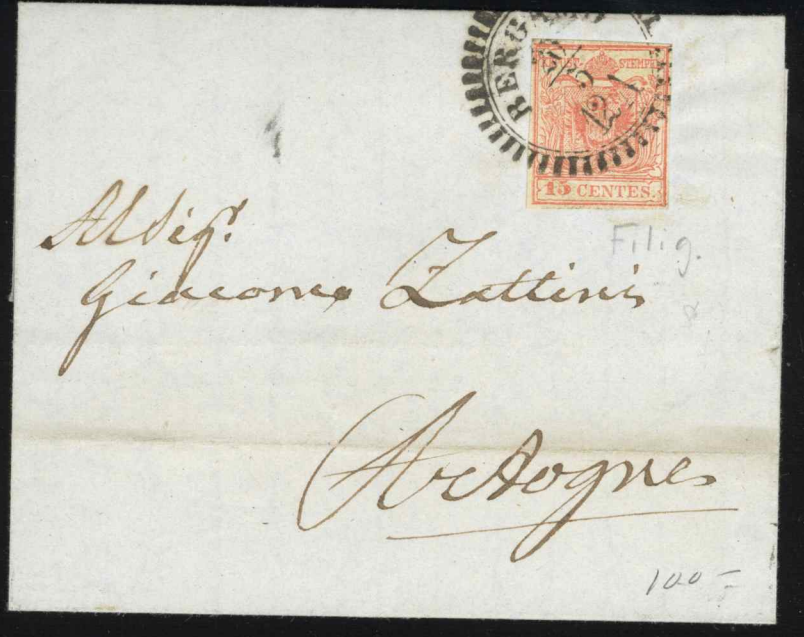 BERGAMO
STEMPEL
15 CENTES.
Filig.
Al Sigr.
Giacomo Zattini
Artogne
100 =